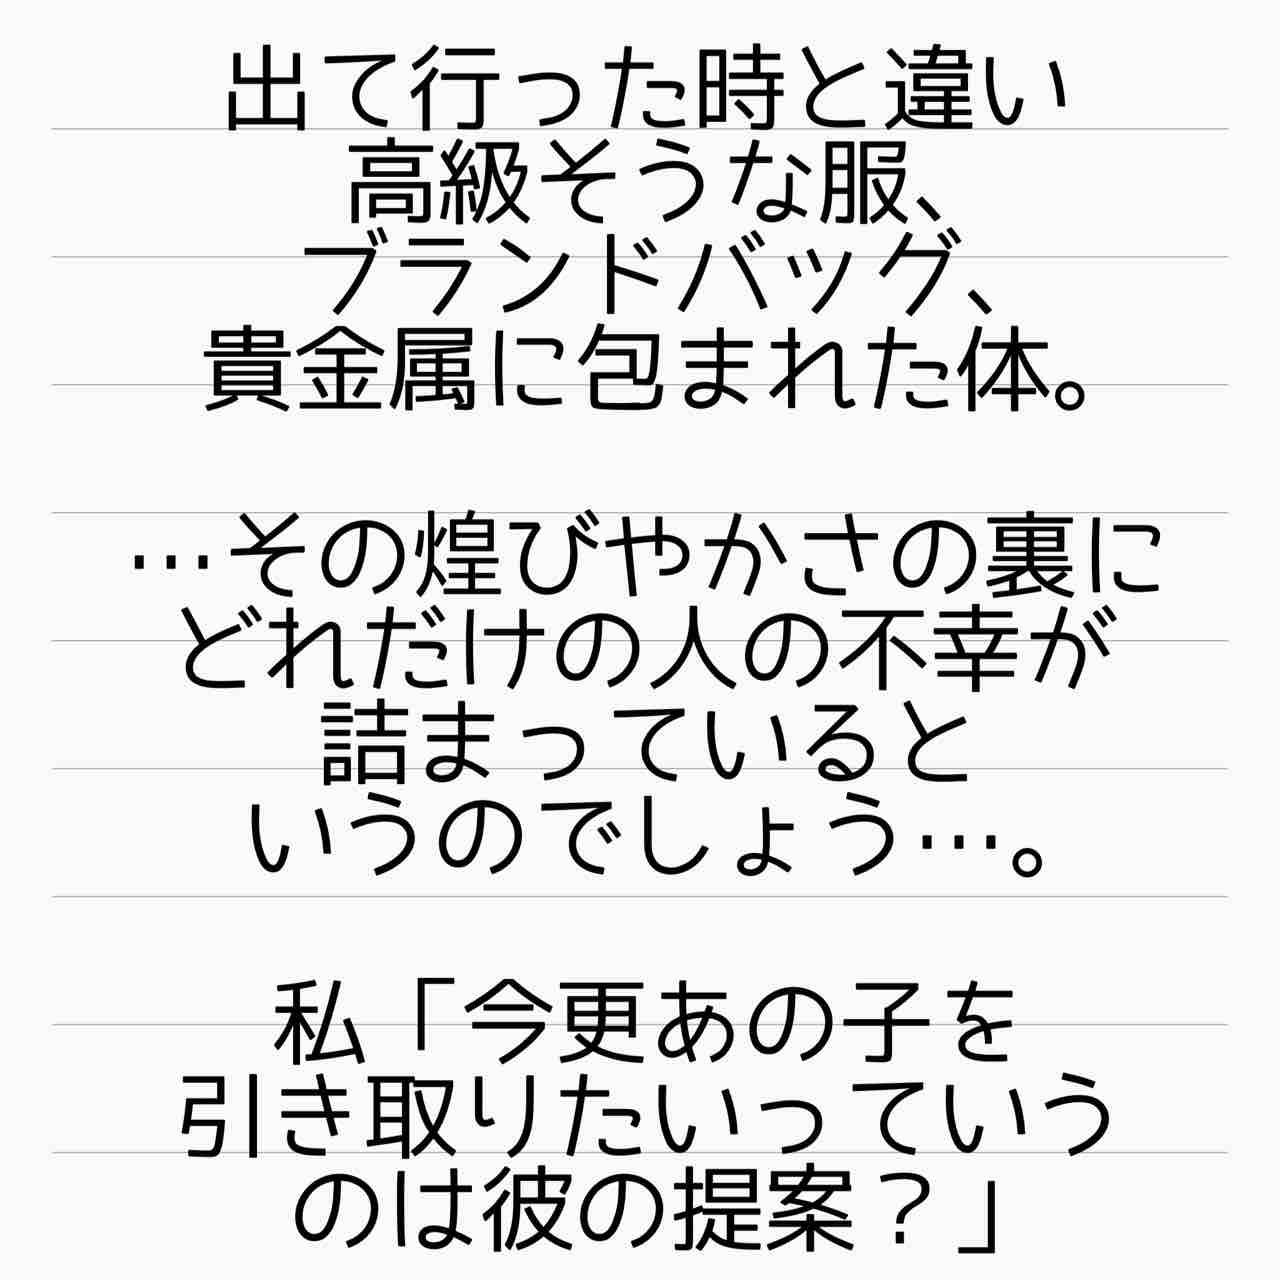 出て行った時と違い
高級そうな服、
ブランドバッグ、
貴金属に包まれた体。
…その煌びやかさの裏に
どれだけの人の不幸が
詰まっていると
いうのでしょう…。
私「今更あの子を
引き取りたいっていう
のは彼の提案？」